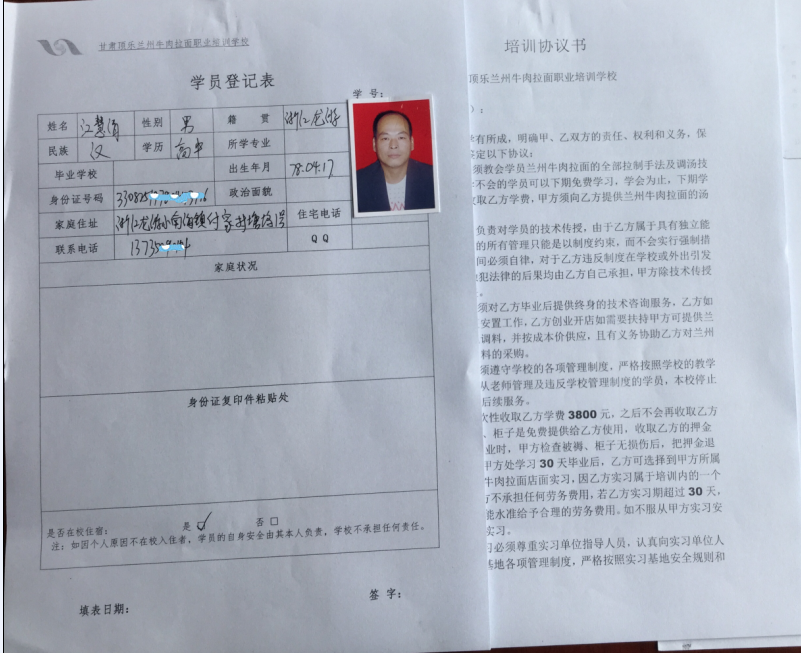 甘肃顶乐兰州牛肉拉面职业培训学校
学员登记表
学号:
姓名 江慧 性别 男 籍贯 浙江龙游
民族 汉 学历 高中 所学专业
毕业学校 出生年月 78.04.17
身份证号码 政治面貌
家庭住址 浙江龙游小南海镇付家村 住宅电话
联系电话 QQ
家庭状况
身份证复印件粘贴处
是否在校住宿: 是 ✓ 否 □
注:如因个人原因不在校入住者,学员的自身安全由其本人负责,学校不承担任何责任。
填表日期: 签字:
培训协议书
顶乐兰州牛肉拉面职业培训学校
):
学有所成,明确甲、乙双方的责任、权利和义务,保
签定以下协议:
须教会学员兰州牛肉拉面的全部拉制手法及调汤技
学不会的学员可以下期免费学习,学会为止,下期学
收取乙方学费,甲方须向乙方提供兰州牛肉拉面的汤
负责对学员的技术传授,由于乙方属于具有独立能
的所有管理只能是以制度约束,而不会实行强制措
间必须自律,对于乙方违反制度在学校或外出引发
犯法律的后果均由乙方自己承担,甲方除技术传授
须对乙方毕业后提供终身的技术咨询服务,乙方如
安置工作,乙方创业开店如需要扶持甲方可提供兰
调料,并按成本价供应,且有义务协助乙方对兰州
料的采购。
须遵守学校的各项管理制度,严格按照学校的教学
从老师管理及违反学校管理制度的学员,本校停止
后续服务。
次性收取乙方学费3800元,之后不会再收取乙方
、柜子是免费提供给乙方使用,收取乙方的押金
业时,甲方检查被褥、柜子无损伤后,把押金退
甲方处学习30天毕业后,乙方可选择到甲方所属
牛肉拉面店面实习,因乙方实习属于培训内的一个
方不承担任何劳务费用,若乙方实习期超过30天,
能水准给予合理的劳务费用。如不服从甲方实习安
实习。
习必须尊重实习单位指导人员,认真向实习单位人
基地各项管理制度,严格按照实习基地安全规则和